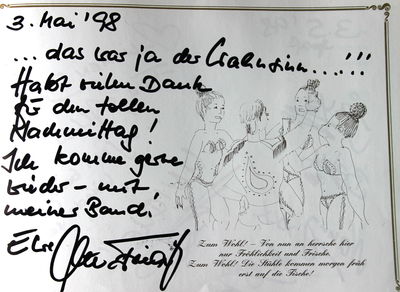 3. Mai '98
... das war ja der Wahnsinn....!!!
Habt vielen Dank
für den tollen
Nachmittag!
Ich komme gerne
wieder - mit
meiner Band.
Zum Wohl! – Von nun an herrsche hier
nur Fröhlichkeit und Frische.
Zum Wohl! Die Stühle kommen morgen früh
erst auf die Tische!